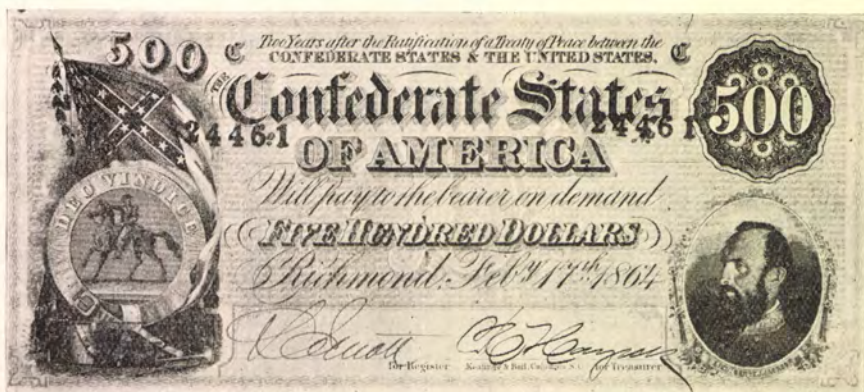 500 C Two Years after the Ratification of a Treaty of Peace between the C
CONFEDERATE STATES & THE UNITED STATES,
THE
Confederate States 500
24461 24461
OF AMERICA
DEO VINDICE
Will pay to the bearer on demand
FIVE HUNDRED DOLLARS
Richmond, Feby. 17th 1864
for Register Keatinge & Ball, Columbia, S.C. for Treasurer